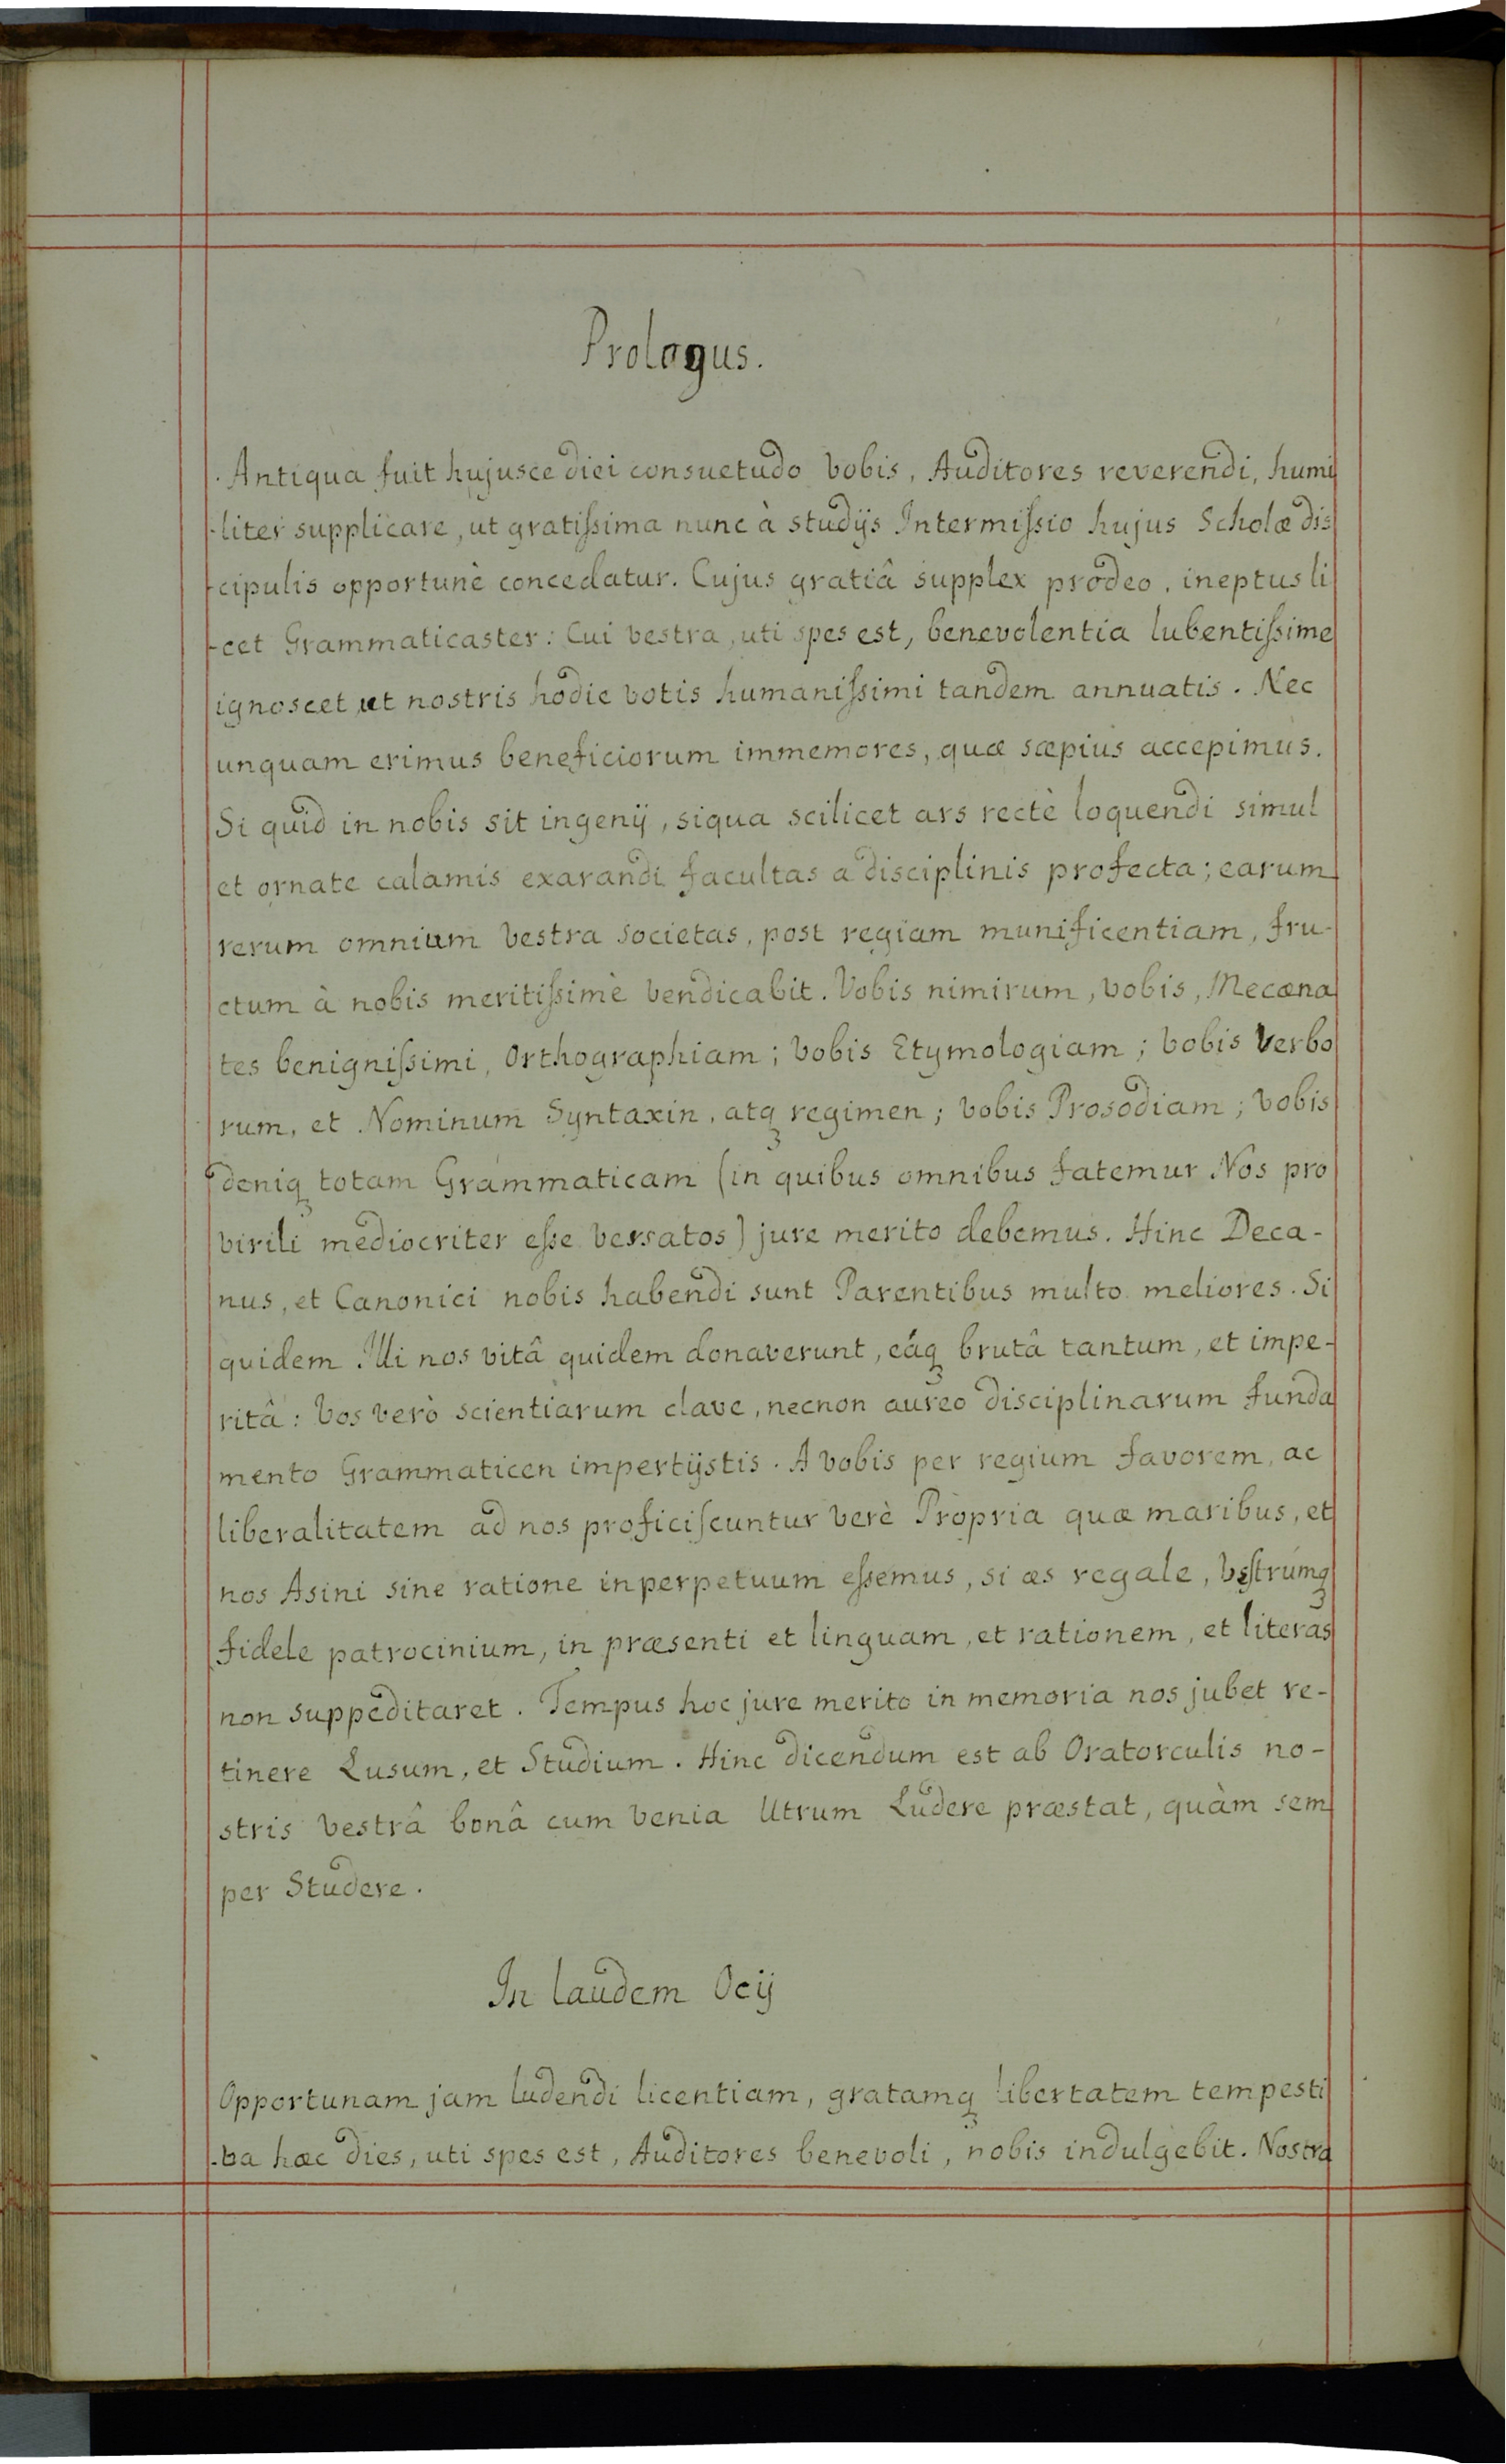 Prologus.
Antiqua fuit hujusce diei consuetudo vobis, Auditores reverendi, humi
-liter supplicare, ut gratissima nunc à studijs Intermissio hujus Scholæ dis
-cipulis opportunè concedatur. Cujus gratiâ supplex prodeo, ineptus li
-cet Grammaticaster: Cui vestra, uti spes est, benevolentia lubentissime
ignoscet ut nostris hodie votis humanissimi tandem annuatis. Nec
unquam erimus beneficiorum immemores, quæ sæpius accepimus.
Si quid in nobis sit ingenij, siqua scilicet ars rectè loquendi simul
et ornate calamis exarandi facultas a disciplinis profecta; earum
rerum omnium vestra societas, post regiam munificentiam, fru-
ctum à nobis meritissimè vendicabit. Vobis nimirum, vobis, Mecæna
tes benignissimi, Orthographiam; vobis Etymologiam; vobis Verbo
rum, et Nominum Syntaxin, atqꝫ regimen; vobis Prosodiam; vobis
deniqꝫ totam Grammaticam (in quibus omnibus fatemur Nos pro
virili mediocriter esse versatos) jure merito debemus. Hinc Deca-
nus, et Canonici nobis habendi sunt Parentibus multo meliores. Si
quidem Illi nos vitâ quidem donaverunt, eáqꝫ brutâ tantum, et impe-
ritâ: Vos verò scientiarum clave, necnon aureo disciplinarum funda
mento Grammaticen impertijstis. A vobis per regium favorem, ac
liberalitatem ad nos proficiscuntur verè Propria quæ maribus, et
nos Asini sine ratione in perpetuum essemus, si æs regale, vestrúmqꝫ
fidele patrocinium, in præsenti et linguam, et rationem, et literas
non suppeditaret. Tempus hoc jure merito in memoria nos jubet re-
tinere Lusum, et Studium. Hinc dicendum est ab Oratorculis no-
stris vestrâ bonâ cum venia Utrum Ludere præstat, quàm sem
per Studere.
In laudem Ocij
Opportunam jam ludendi licentiam, gratamqꝫ libertatem tempesti
-va hæc dies, uti spes est, Auditores benevoli, nobis indulgebit. Nostra